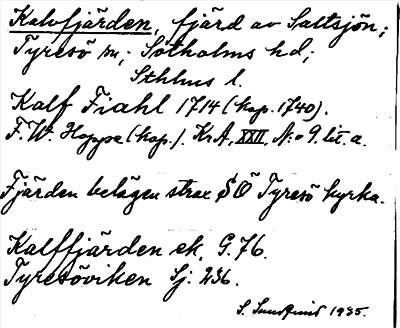 Kalvfjärden, fjärd av Saltsjön;
Tyresö sn; Sotholms hd;
Sthlms l.
Kalf Fiahl 1714 (kop. 1740).
F. W. Hoppe (kop.). KrA, XXII, N:o 9. lit. a.
Fjärden belägen strax SÖ Tyresö kyrka.
Kalffjärden ek. G. 76.
Tyresöviken Sj. 236.
S. Sundquist 1935.